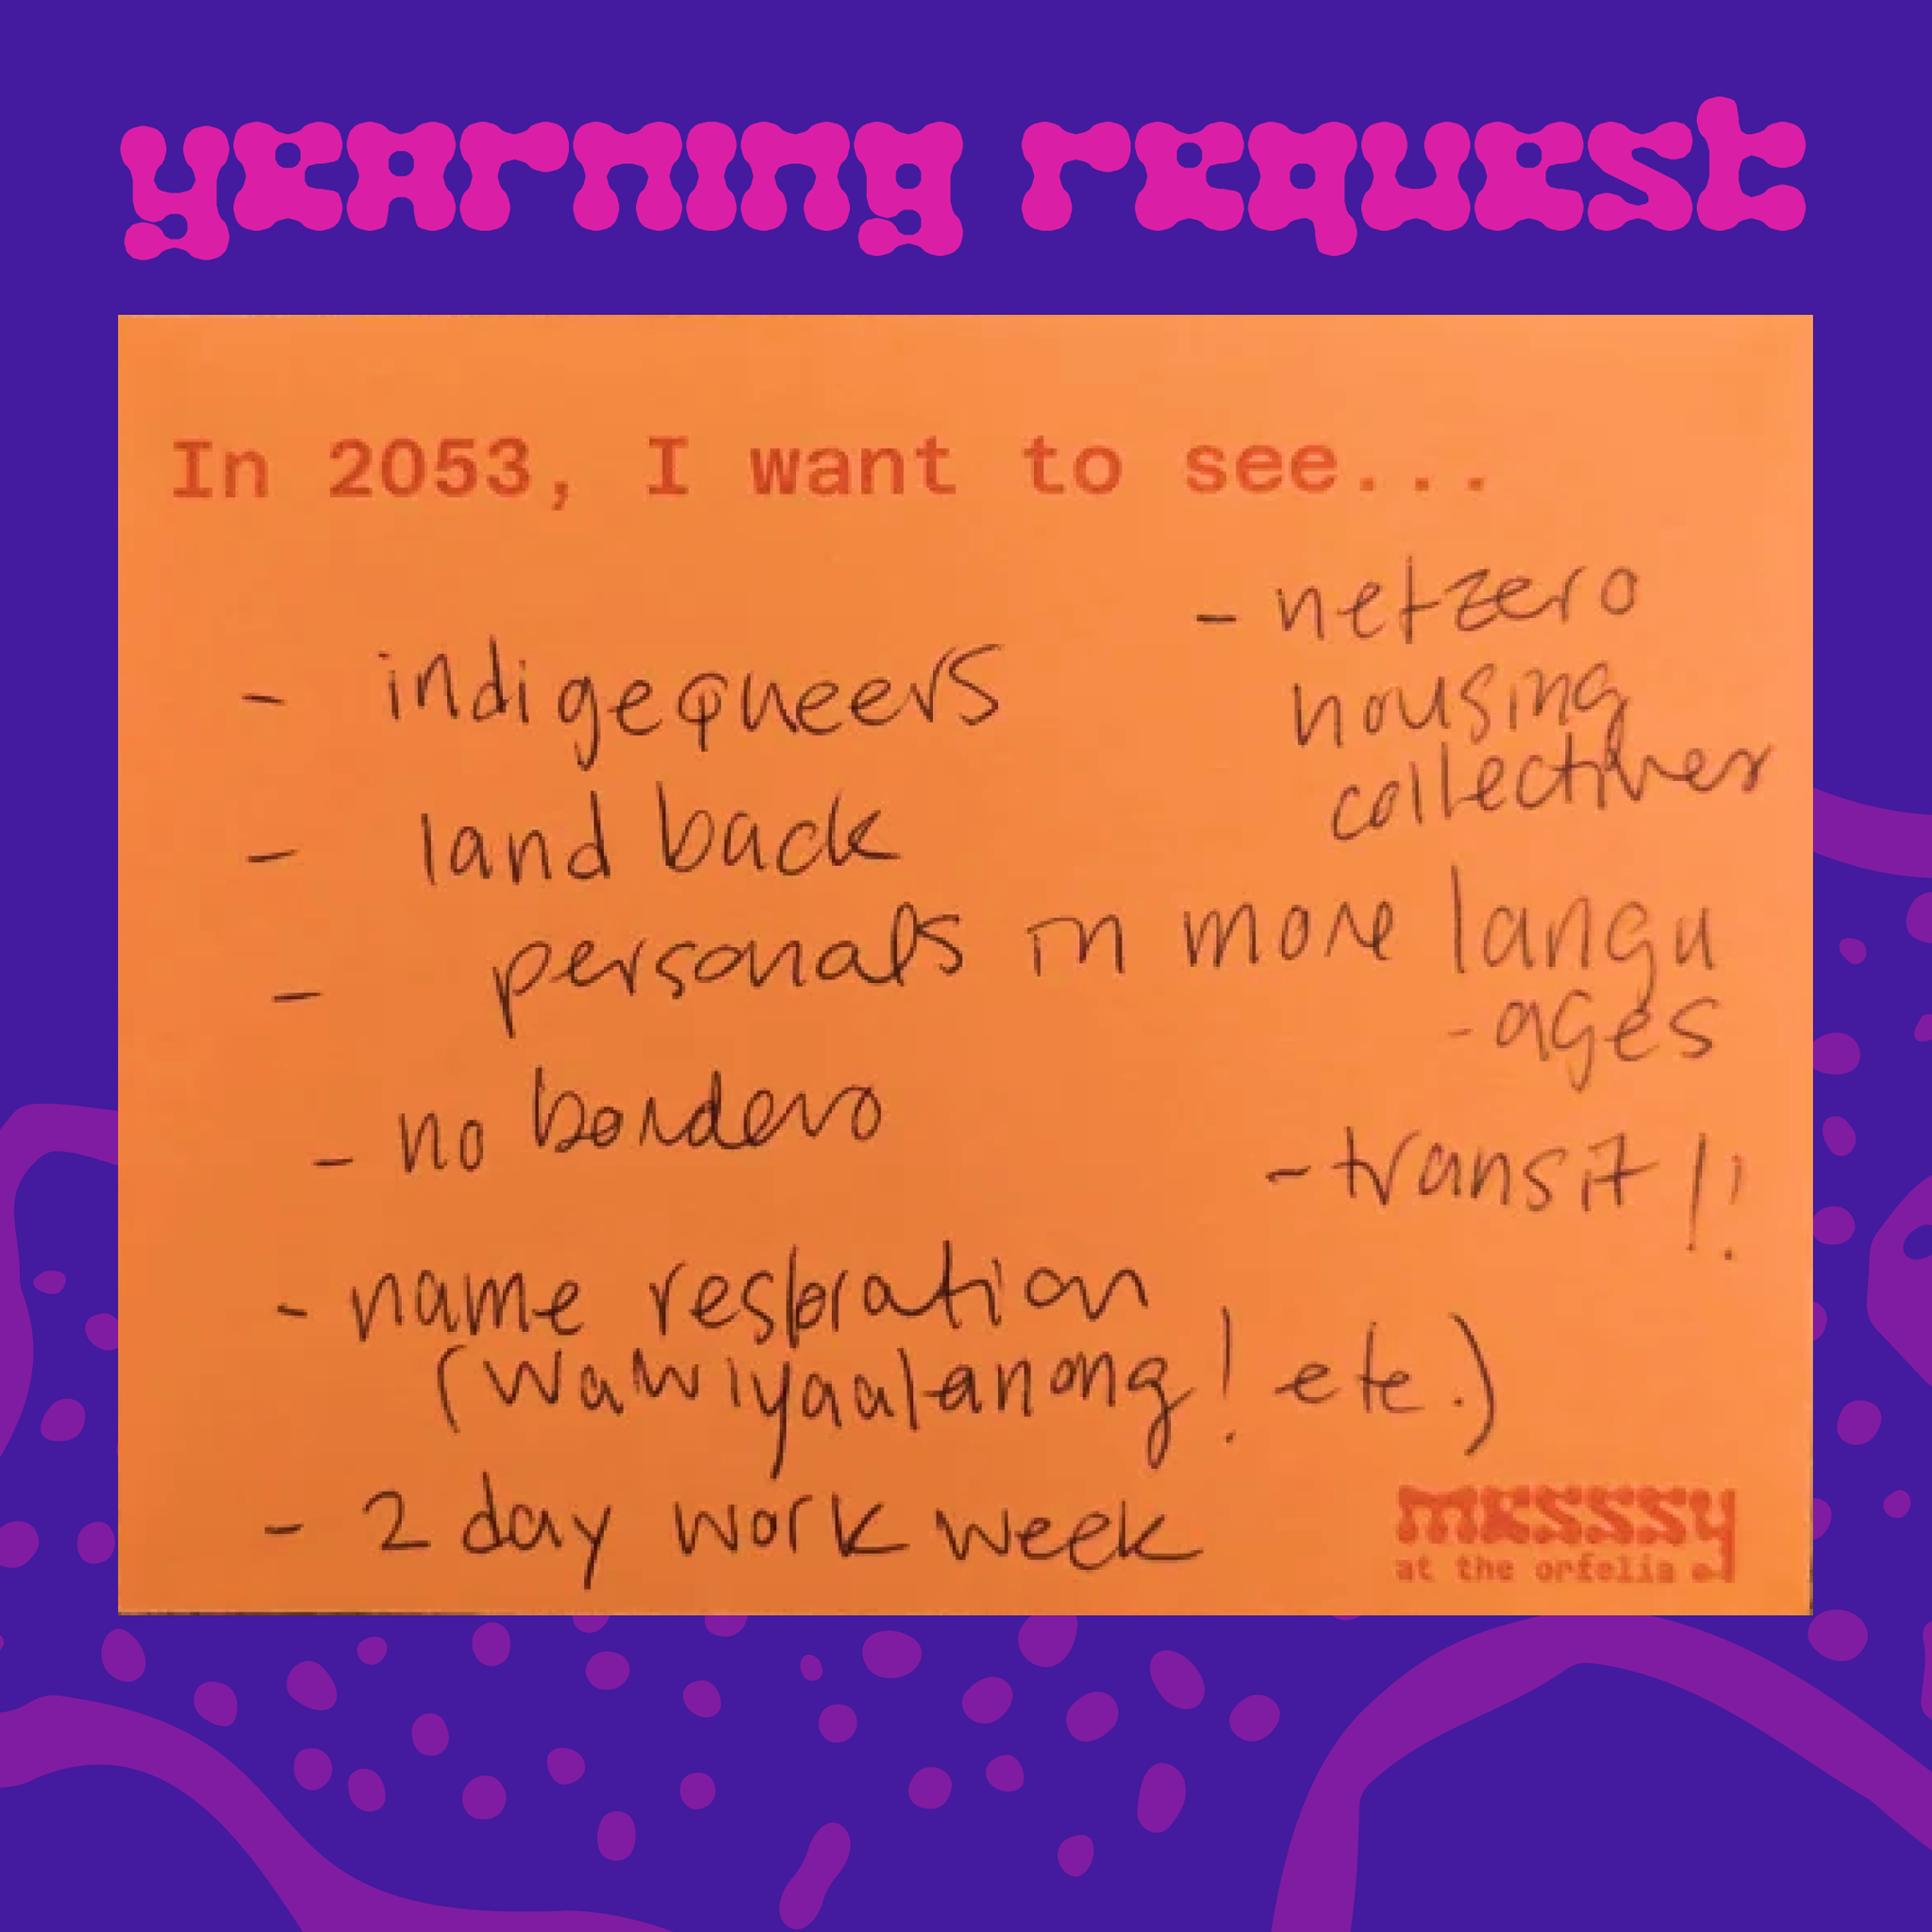 yearning request
In 2053, I want to see...
- indigequeers
- land back
- personals in more langu
-ages
- no borders
- name restoration
(Wawiyaalanong! etc.)
- 2 day work week
- netzero
housing
collectives
- transit!!
messsy
at the orfelia